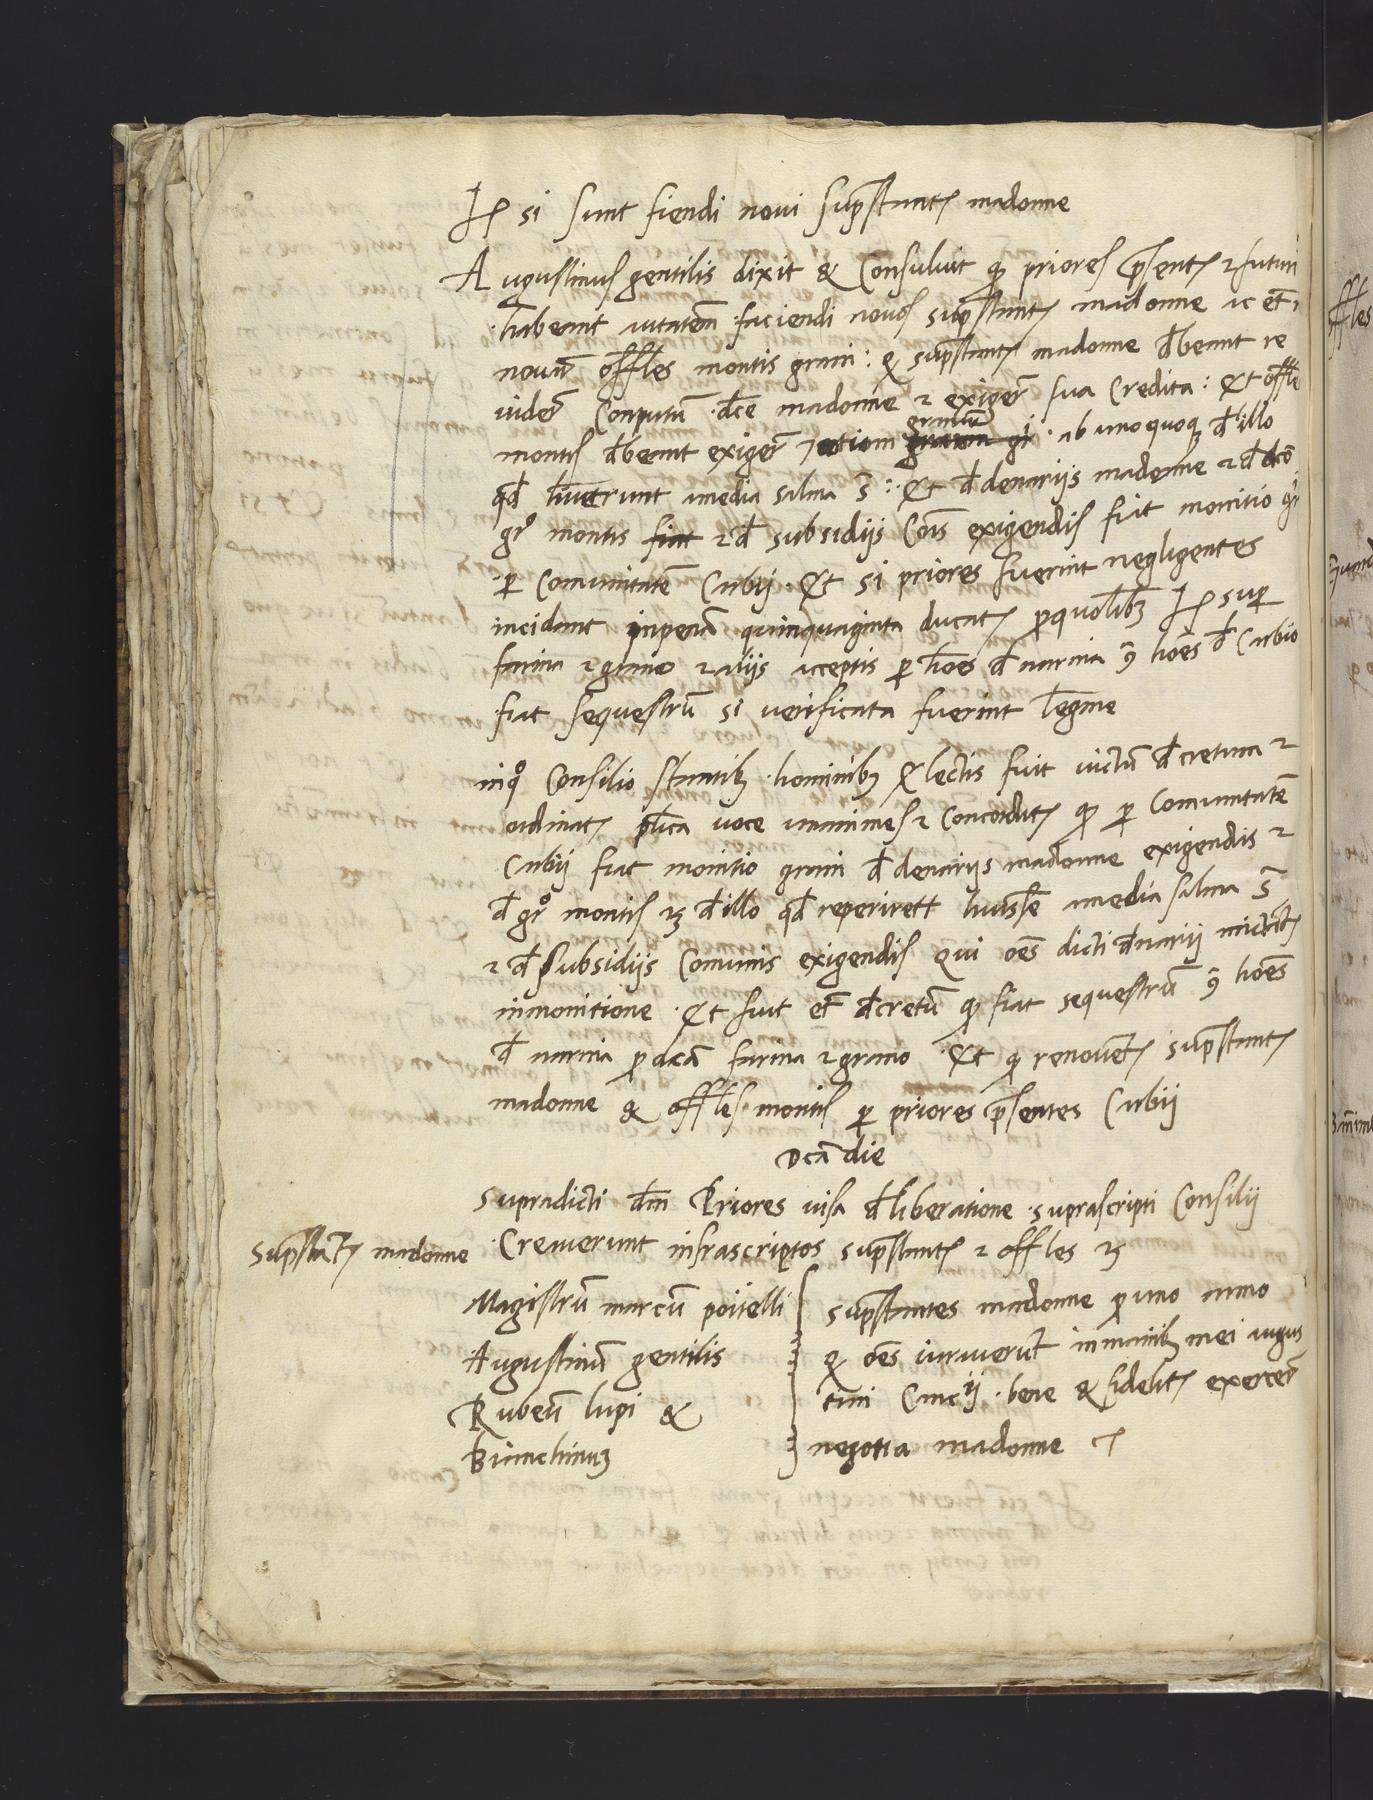 It si sunt fiendi novi supstantes madonne
Augustinus gentilis dixit & Consuluit qd priores psentes et futuri
habeant autatem faciendi novos supstantes madonne ac et
novum offles montis grani : & supstantes madonne dbeant re
videre Computum dce madonne et exigere sua Credita : Et offle
montis dbeant exigere granum ab unoquoque d illo
qd huerunt a media salma s : Et d denariis madonne et d dco
gro montis fiat et d subsidiis Cois exigendis fiat monitio gr
p Comunitatem Curbij . Et si priores fuerint negligentes
incidant in penam quinquaginta ducatos p quolibet It super
farina et grano et aliis acceptis p hoes d narnia con hoes d Curbio
fiat sequestrum si verificata fuerint legme
in quo Consilio stantibus hominibus & lectis fuit victum dcretum et
ordinatum plica voce unanimes et Concorditer qd p Comunitatem
Curbij fiat monitio grani d denariis madonne exigendis et
d gro montis et d illo qd reperirett huisse a media salma s
et d subsidiis Comunis exigendis qui oes dicti denarii mictantur
in monitione . Et fuit et dcretum qd fiat sequestrum con hoes
d narnia p dcam farina et grano . Et qd renoventur supstantes
madonne & offles montis p priores psentes Curbij
Dca die
Supradicti dni Priores visa dliberatione suprascripti Consilii
supstantes madonne
Creaverunt infrascriptos supstantes et offles
Magistrum marcum poitelli
Augustinum gentilis
Rubeum lupi &
Bianchinum
supstantes madonne p uno anno
& oes iuraverunt in manibus mei augus
tini bene & fideliter exercere
negotia madonne